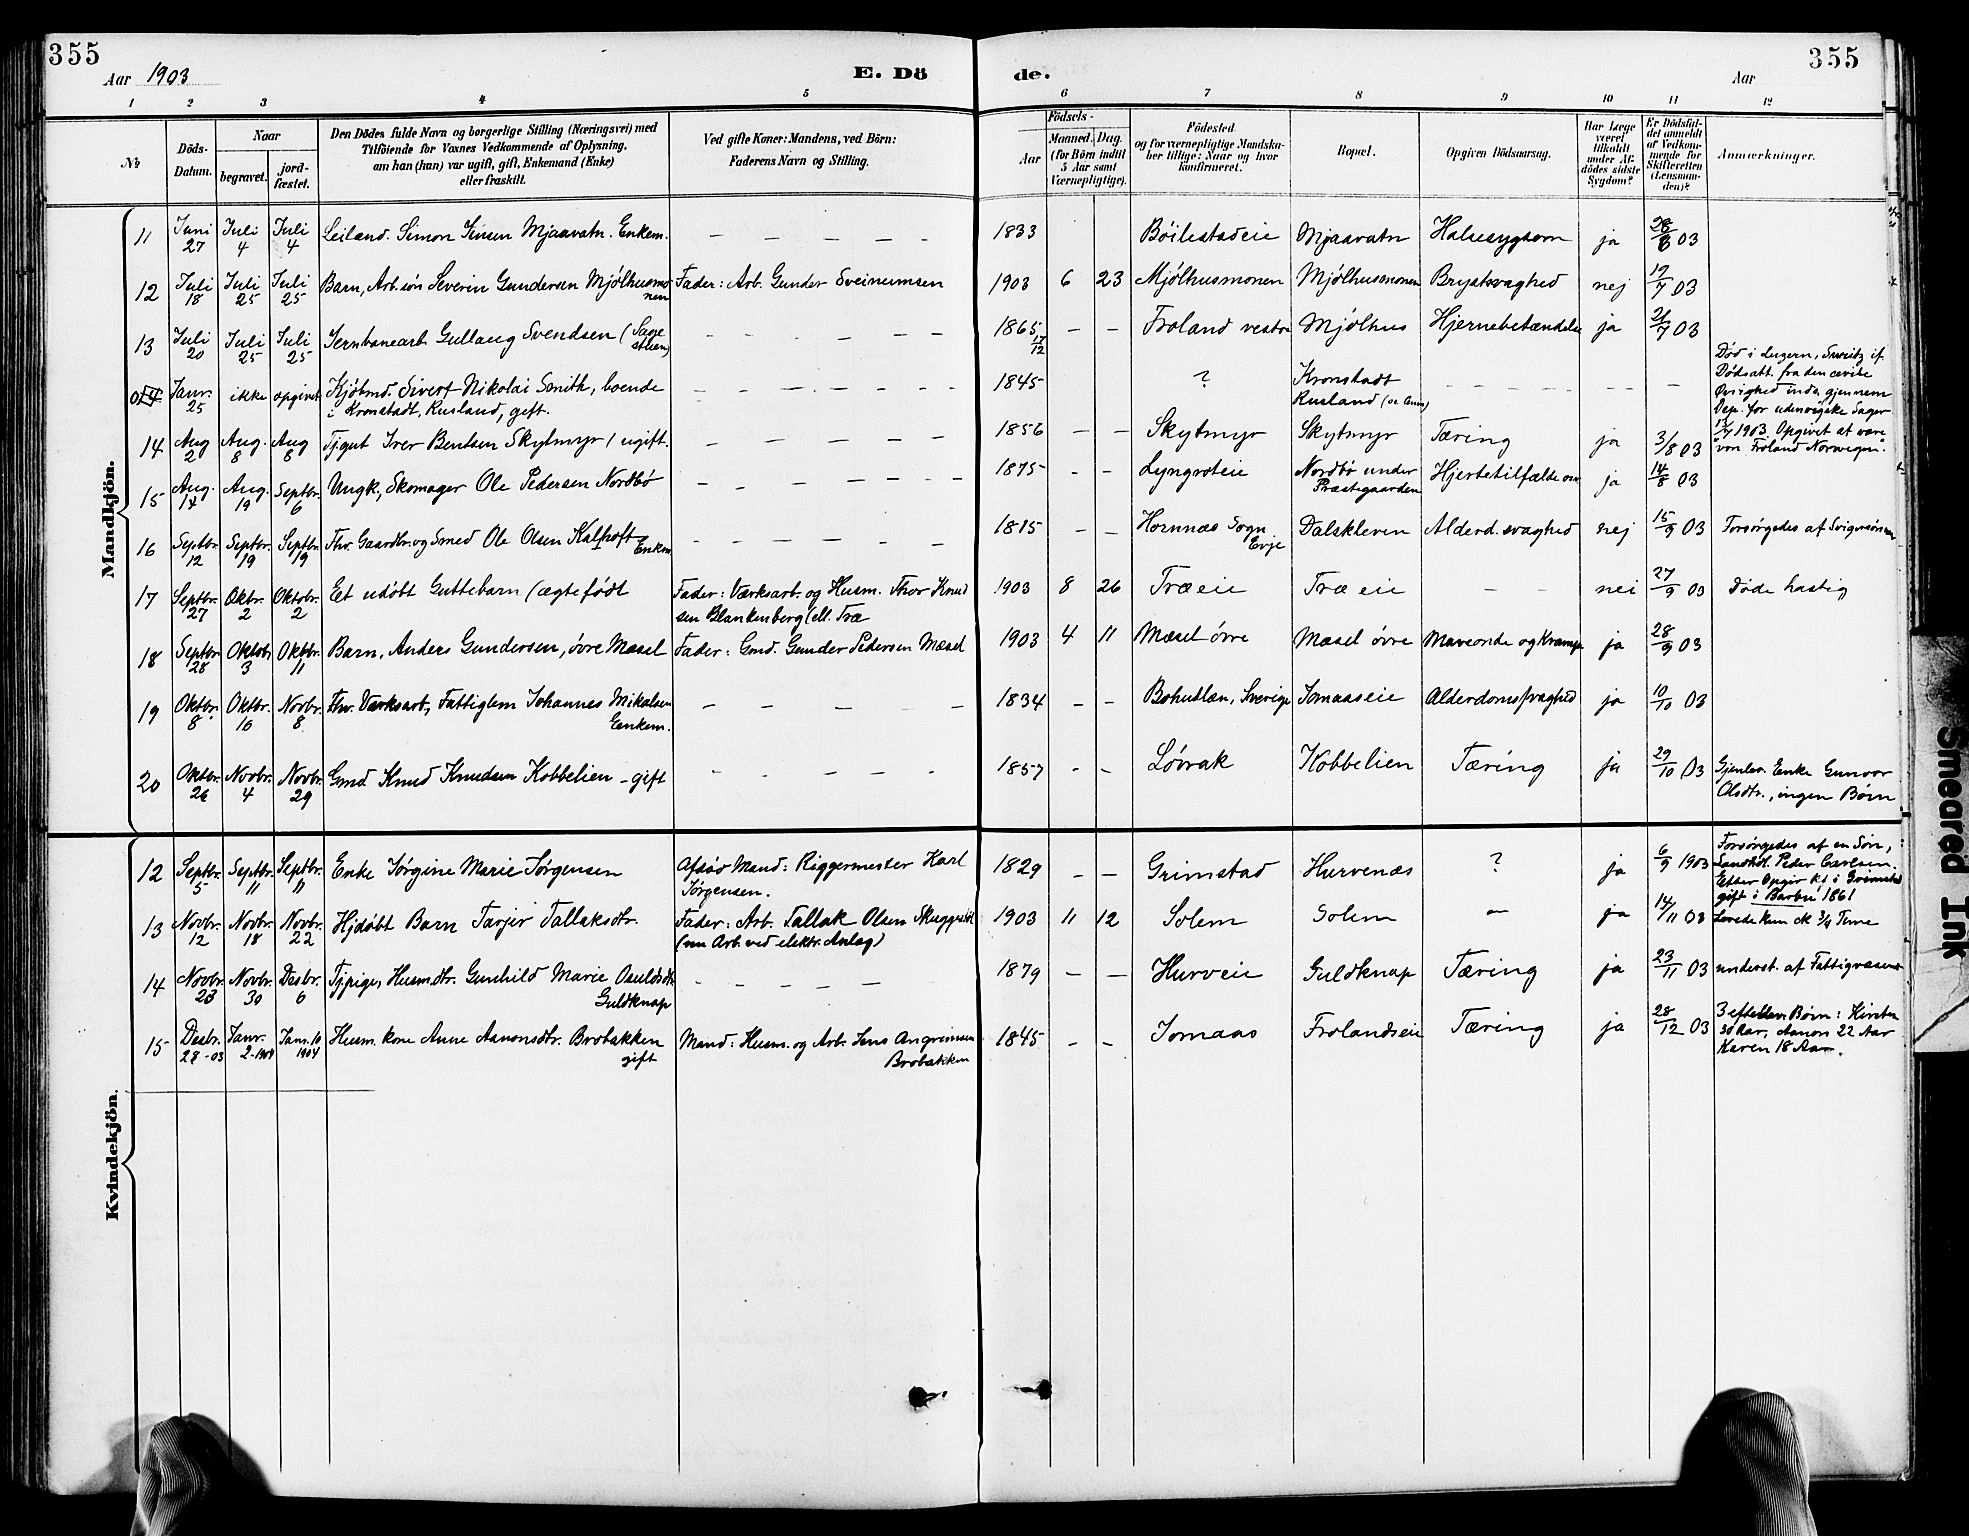 355
355
Aar 1903
E. Dö
de.
Aar
1 2 3 4 5 6 7 8 9 10 11 12
No
Döds-Datum.
Naar
begravet.
jord-fæstet.
Den Dödes fulde Navn og borgerlige Stilling (Næringsvei) med
Tilföiende for Voxnes Vedkommende af Oplysning,
om han (hun) var ugift, gift, Enkemand (Enke)
eller fraskilt.
Ved gifte Koner: Mandens, ved Börn:
Faderens Navn og Stilling.
Födsels-
Aar
Maaned. Dag.
(for Börn indtil
5 Aar samt
Værnepligtige).
Födested
og for værnepligtige Mandska-
ber tillige: Naar og hvor
konfirmeret.
Bopæl.
Opgiven Dödsaarsag.
Har Læge
været
tilkaldt
under Af-
dödes sidste
Sygdom?
Er Dödsfal-
det anmeldt
af Vedkom-
mende for
Skifteretten
(Lensman-
den)?
Anmærkninger.
Mandkjön.
11 Juni 27 Juli 4 Juli 4 Leiland. Simon Jensen Mjaavatn. Enkem. — — — — — 1833 Böilestadeie Mjaavatn Halsesygdom ja 28/6 03
12 Juli 18 Juli 25 Juli 25 Barn, Arb. søn Severin Gundersen Mjölhusmonen Fader: Arb. Gunder Sveinumsen 1903 6 23 Mjölhusmonen Mjölhusmonen Brystsvaghed nej 19/7 03
13 Juli 20 Juli 25 Juli 25 Jernbanearb Gullaug Svendsen (Sagestuen) - - - - - 1865 17/12 — — Froland vestre Mjölhus Hjernebetændelse ja 21/7 03
Janr. 25 ikke opgivet Kjöbmd. Sivert Nikolai Smith, boende
i Kronstadt, Rusland, gift. - - - - - 1845 ? Kronstadt
Rusland - - - - - Död i Luzern, Sweitz if.
Dödsatt. fra den civile
Övrighed inds. gjennem
Dep. for udenrigske Sager
1903. Opgivet at være
"von Froland Norwegen".
14 Aug 2 Aug. 8 Aug 8 Tjgut Iver Bentsen Skytmyr, ugift. - — — — — 1856 — — Skytmyr Skytmyr Tæring ja 3/8 03
15 Aug. 14 Aug. 19 Septbr. 6 Ungk, Skomager Ole Pedersen Nordbö - - - - - 1875 - - Lyngroteie Nordbö under
Præstegaarden Hjertetilfælde ja 14/8 03
16 Septbr. 12 Septbr. 19 Septbr. 19 Fhv. Gaardbr. og Smed Ole Olsen Kalhoft Enkem - - — — - 1815 — — Hornnæs Sogn
Evje Dalskleven Alderd. svaghed nej 15/9 03 Forsörgedes af Svigersönnen
17 Septbr. 27 Oktbr. 2 Oktobr. 2 Et udöbt Guttebarn (ægtefödt Fader: Værksarb. og Husm. Thor Knud
sen Blankenberg (ell. Træ 1903 8 26 Træeie Træ eie - - nei 27/9 03 Döde hastig
18 Septbr 28 Oktobr. 3 Oktbr. 11 Barn, Anders Gundersen, övre Mæsel Fader: Gmd. Gunder Pedersen Mæsel 1903 4 11 Mæsel övre Mæsel övre Maveonde og Krampe ja 28/9 03
19 Oktbr. 8 Oktbr. 16 Novbr. 8 Fhv. Værksarb, Fattiglem Johannes Mikalsen
Enkem. — — — — — 1834 - - Bohuslæn, Sverige Jomaaseie Alderdomssvaghed ja 10/10 03
20 Oktbr. 26 Novbr. 4 Novbr. 29 Gmd Knud Knudsen Kobbelien - gift - - - - - 1857 - - Lövrak Kobbelien Tæring ja 29/10 03 Gjenlev. Enke Gunvor
Olsdtr., ingen Börn
Kvindekjön.
12 Septbr. 5 Septbr. 11 Septbr. 11 Enke Jörgine Marie Jörgensen Afdöd Mand: Riggermester Karl
Jörgensen. 1829 — — Grimstad Hurvenæs ? ja 6/9 1903 Forsörgedes af en Sön,
Peder Carlsen.
Efter Opgiv. kf. i Grimstad
gift i Barbu 1861
13 Novbr. 12 Novbr. 18 Novbr. 22 Hjdöbt Barn Tarjer Tallaksdtr. Fader: Arb. Tallak Olsen
(nu Arb. ved elektr. Anlæg) 1903 11 12 Solem Solem — ja 14/11 03 Levede kun ck 3/4 Time
14 Novbr. 23 Novbr. 30 Desbr. 6 Tjpige, Husmdtr. Gunhild Marie Osuldsdtr.
Guldknap - - - - - 1879 — — Hurveie Guldknap Tæring ja 23/11 03 underst. af Fattigvæsenet
15 Desbr. 28-03 Janr. 2-1904 Jan. 10 1904 Husm. kone Anne Aanonsdtr. Brobakken
gift Mand: Husm. og Arb. Jens Angrimsen
Brobakken 1845 - - Jomaas Frolandseie Tæring ja 28/12 03 3 efterlev. Börn: Kirsten
30 Aar, Aanon 22 Aar
Karen 18 Aar.
Smeared Ink